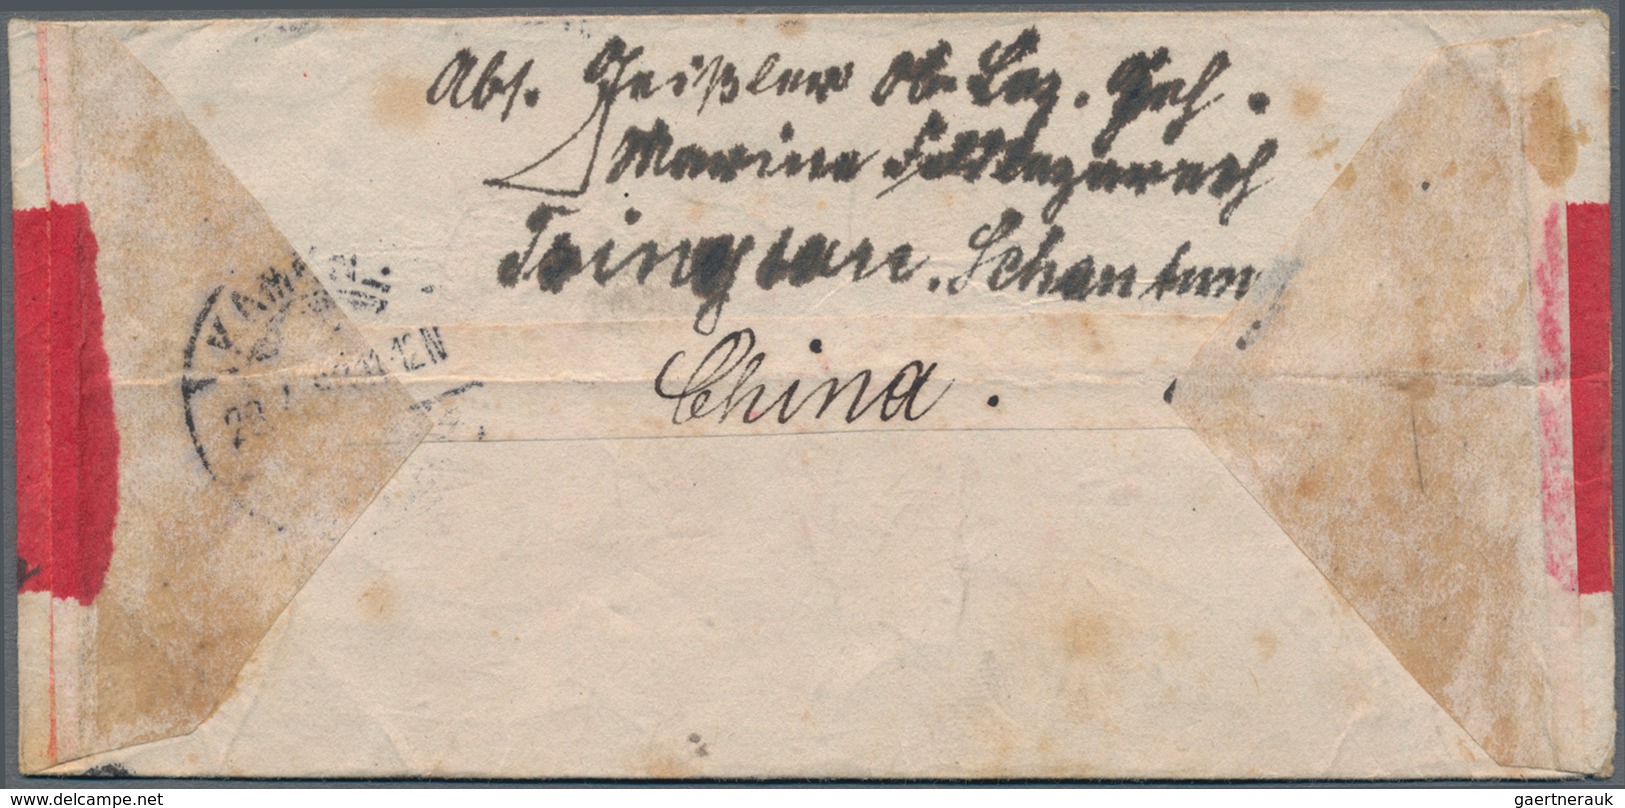 Abs. Geißler Ob. Laz. Geh.
Marine Feldlazareth
Tsingtau. Schantun
China.
11-12N
delcampe.net
gaertnerauk